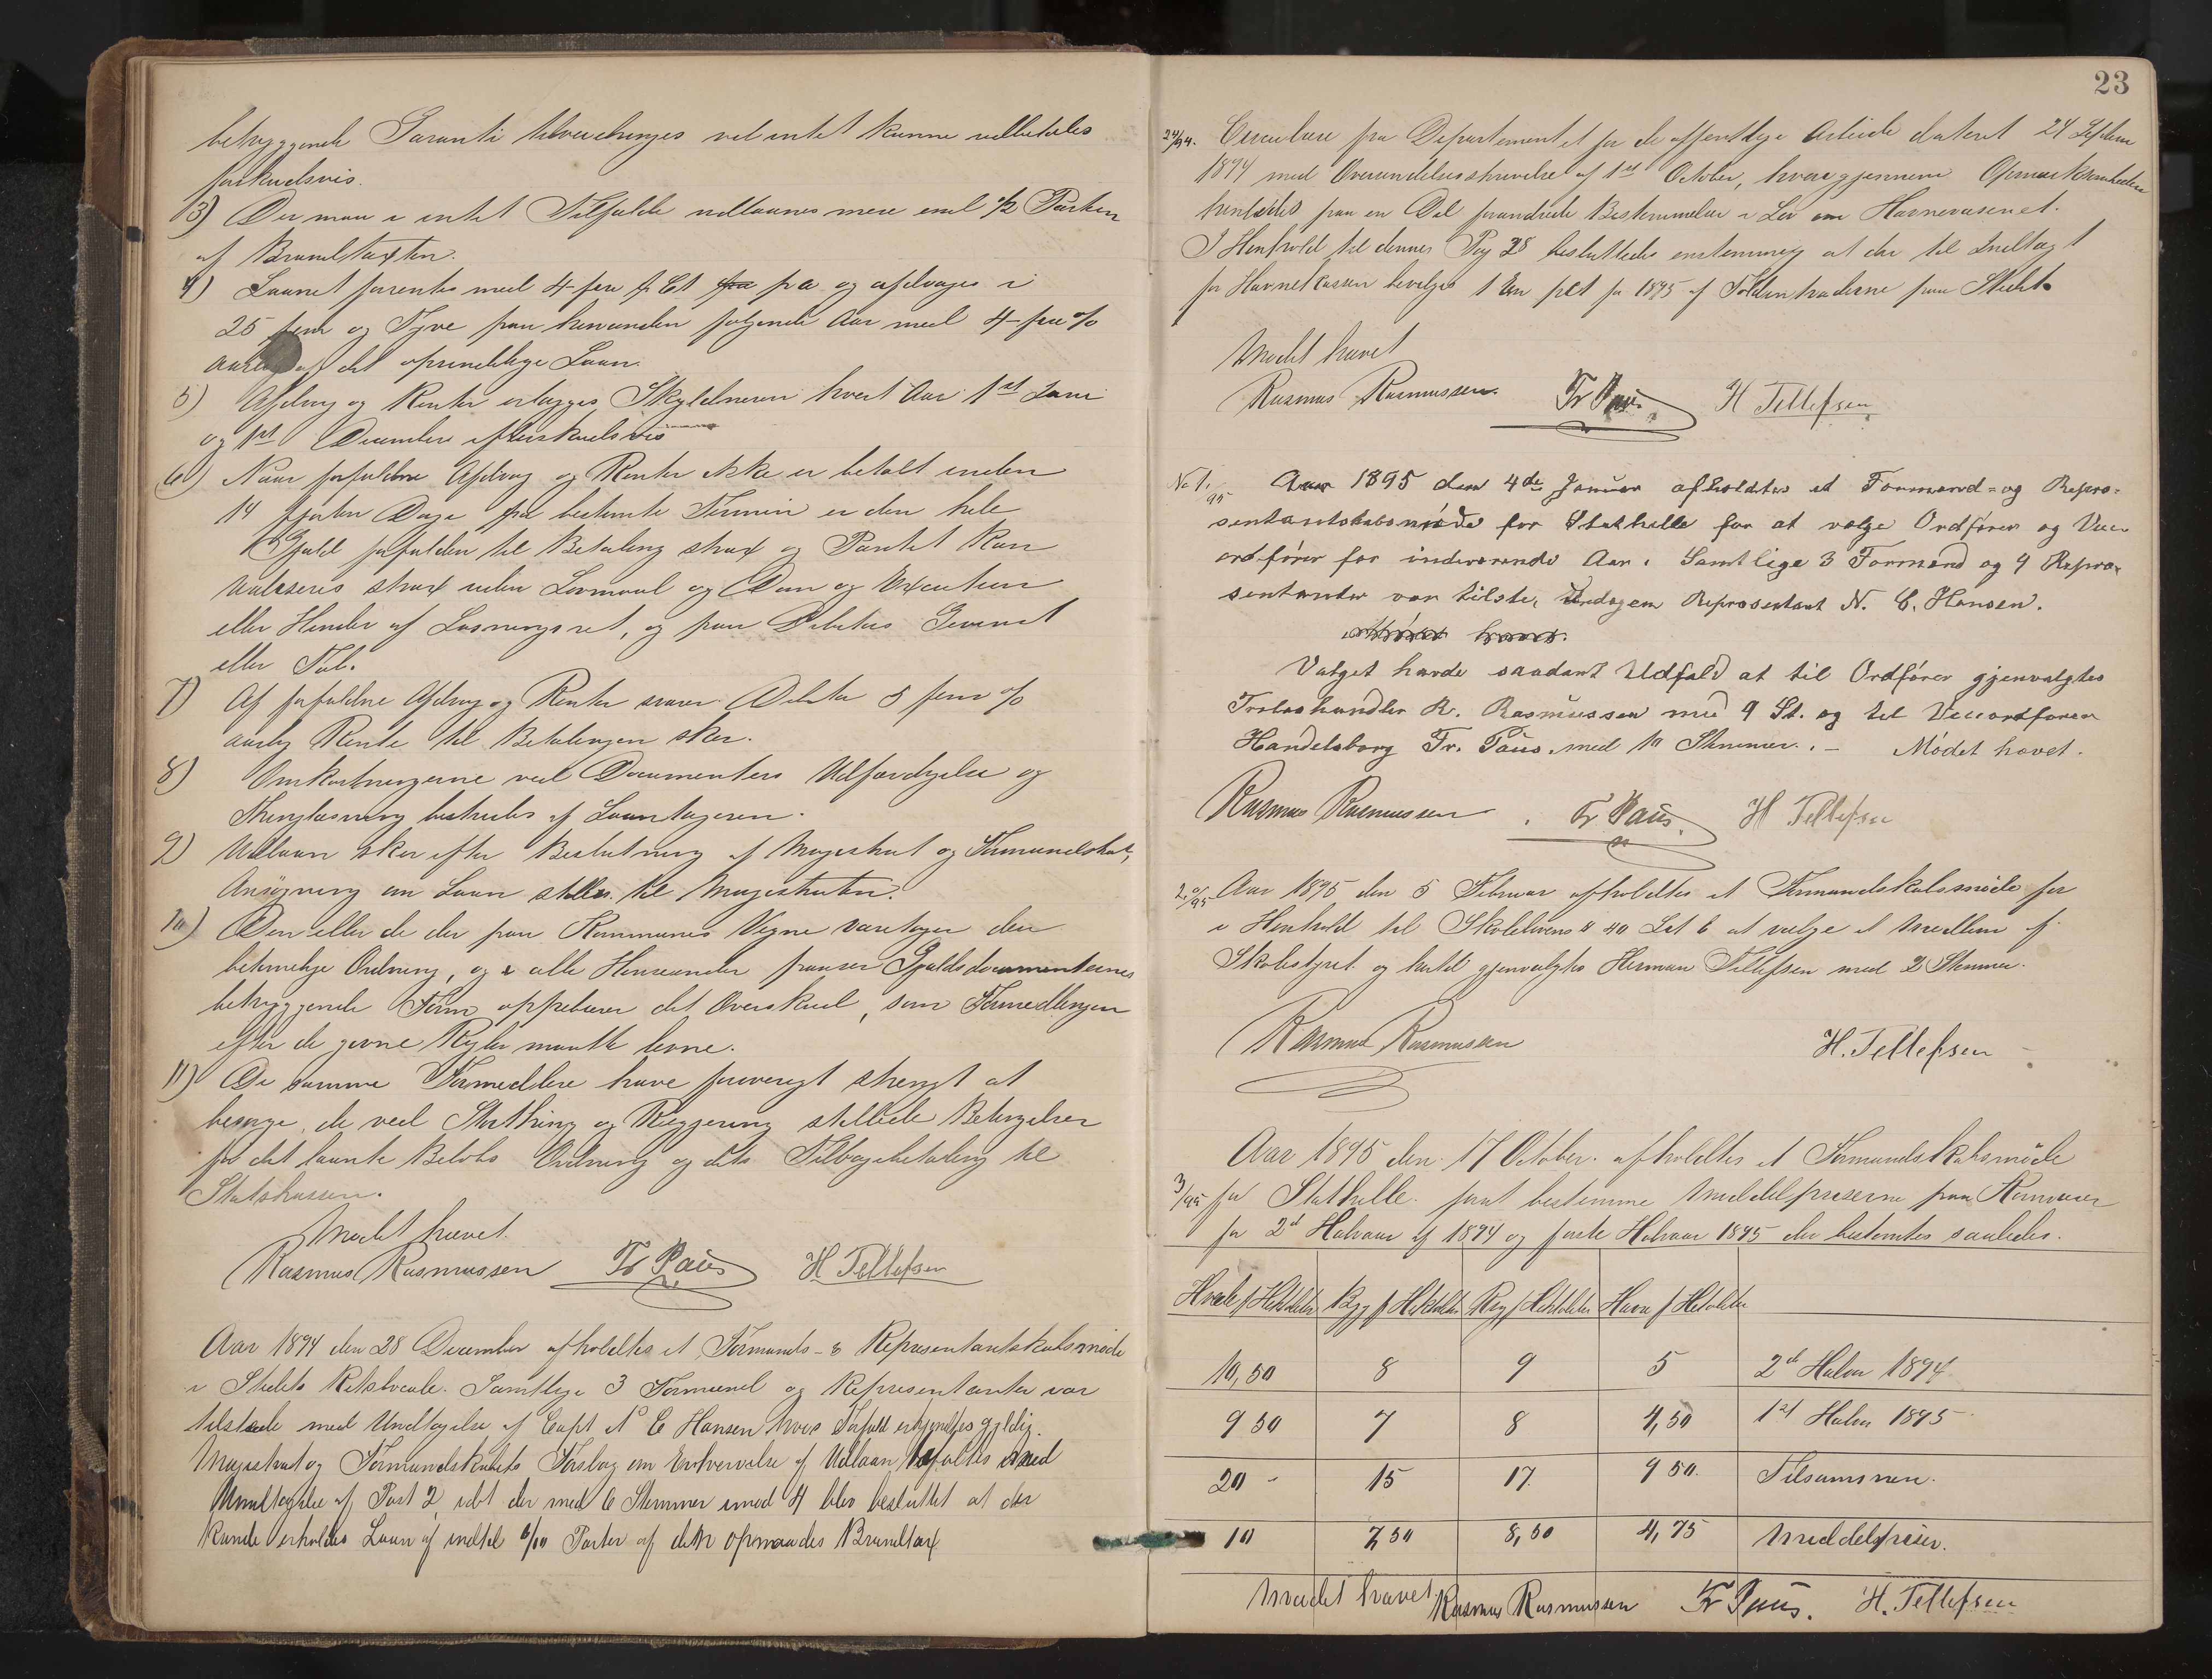 betryggende Garanti tilveiebringes vil intet kunne udbetales
forskudsvis.
3) Der maa i intet Tilfælde udlaanes mere end 1/2 Parten
af Brandtaxten.
4) Laanet forrentes med 4 fire p Ct pa og afdrages i
25 fem og Tyve paa hinanden følgende Aar med 4 fire %
aarlig af det oprindelige Laan.
5) Afdrag og Renter erlægges Skyldneren hvert Aar 1st Juni
og 1st December efterskudsvis
6) Naar forfaldne Afdrag og Renter ikke er betalt inden
14 fjorten Dage fra bestemte Termin er den hele
Gjæld forfalden til Betaling strax og Pantet kan
realiseres strax uden Lovmaal og Dom og Execution
eller Hinder af Løsningsret, og paa Debitors Gevinst
eller Tab.
7) Af forfaldne Afdrag og Renter svarer Debitor 5 fem %
aarlig Rente til Betalingen sker.
8) Omkostningerne ved Documenters Udfærdigelse og
Thinglæsning bestrides af Laantageren.
9) Udlaan sker efter Beslutning af Magistrat og Formandskab,
Ansøgning om Laan stilles til Magistraten.
10) Den eller de der paa Kommunes Vegne varetager den
betimelige Ordning, og i alle Henseender Gjældsdocumenternes
betryggende Form oppebærer det Overskud, som Formedlingen
efter de givne Regler maatte levne.
11) De samme Formedlere have forøvrigt strengt at
besørge de ved Storthing og Regjering stillede Betingelser
for det laante Beløbs Ordning og dets Tilbagebetaling til
Statskassen.
Mødet hævet.
Rasmus Rasmussen Fr Paus H Tellefsen
Aar 1894 den 28 December afholdtes et Formands- & Representantskabsmøde
i Stedets Retslocale. Samtlige 3 Formænd og Representanter var
tilstede med Undtagelse af Capt N C Hansen hvis Forfald erkjendtes gyldig.
Magistrat og Formandskabets Forslag om Erhvervelse af Udlaan med
Undtagelse af Post 2, idet der med 6 Stemmer imod 4 blev besluttet at der
kunde erholdes Laan af indtil 6/10 Parter af den Brandtaxt
23
24/94. Circulære fra Departementet for de offentlige Arbeide dateret 24 Septem
1894 med Oversendelsesskrivelse af 1st October, hvorigjennem Opmærksomheden
henledes paa en Del forandrede Bestemmelser i Lov om Havnevæsenet.
I Henhold til dennes Pag 38 besluttedes enstemmig at der til Indtægt
for Havnekassen bevilges 1 En pCt for 1895 af Toldintraderne paa Stedet
Mødet hævet
Rasmus Rasmussen. Fr Paus H Tellefsen
No 1/95 Aar 1895 den 4de Januar afholdtes et Formand- og Repræ-
sentantskabsmøde for Stathelle for at vælge Ordfører og Vice
ordfører for indeværende Aar. Samtlige 3 Formænd og 9 Repræ-
sentanter var tilste, Undagen Repræsentant N. C. Hansen.
Valget havde saadant Udfald at til Ordfører gjenvalgtes
Trælashandler R. Rasmussen med 9 St. og til Viceordfører
Handelsborg Fr. Paus med 10 Stemmer. — Mødet hævet.
Rasmus Rasmussen Fr Paus. H Tellefsen
2/95 Aar 1895 den 5 Februar afholdtes et Formandskabsmøde for
i Henhold til Skolelovens § 40 Lit b at vælge et Medlem af
Skolestyret og hertil gjenvalgtes Herman Tellefsen med 2 Stemmer.
Rasmus Rasmussen H. Tellefsen
Aar 1895 den 17 October afholdtes et Formandskabsmøde
3/95 for Stathelle for at bestemme Middelpriserne paa Kornvarer
for 2d Halvaar af 1894 og første Halvaar 1895 der bestemtes saaledes.
Hvede p Hektoliter Byg p Hektoliter Rug p Hektoliter Havre p Hektoliter
10,50 8 9 5 2det Halvaar 1894.
9 50 7 8 4,50 1st Halvaar 1895
20 - 15 17. 9 50. Tilsammen.
10 7,50 8,50 4,75 Middelpriser.
Mødet hævet Rasmus Rasmussen Fr Paus. H. Tellefsen